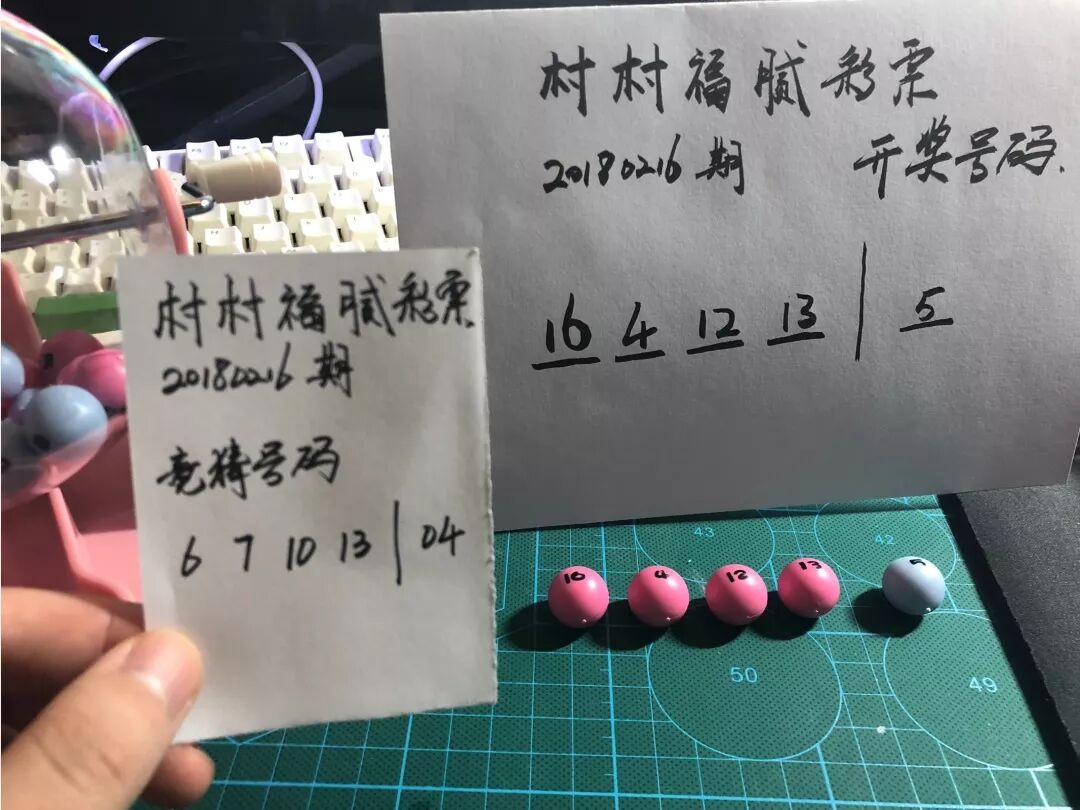 村村福腻彩票
20180216期 开奖号码.
16 4 12 13 | 5
村村福腻彩票
20180216期
竞猜号码
6 7 10 13 | 04
16 4 12 13 5
43
42
50
49